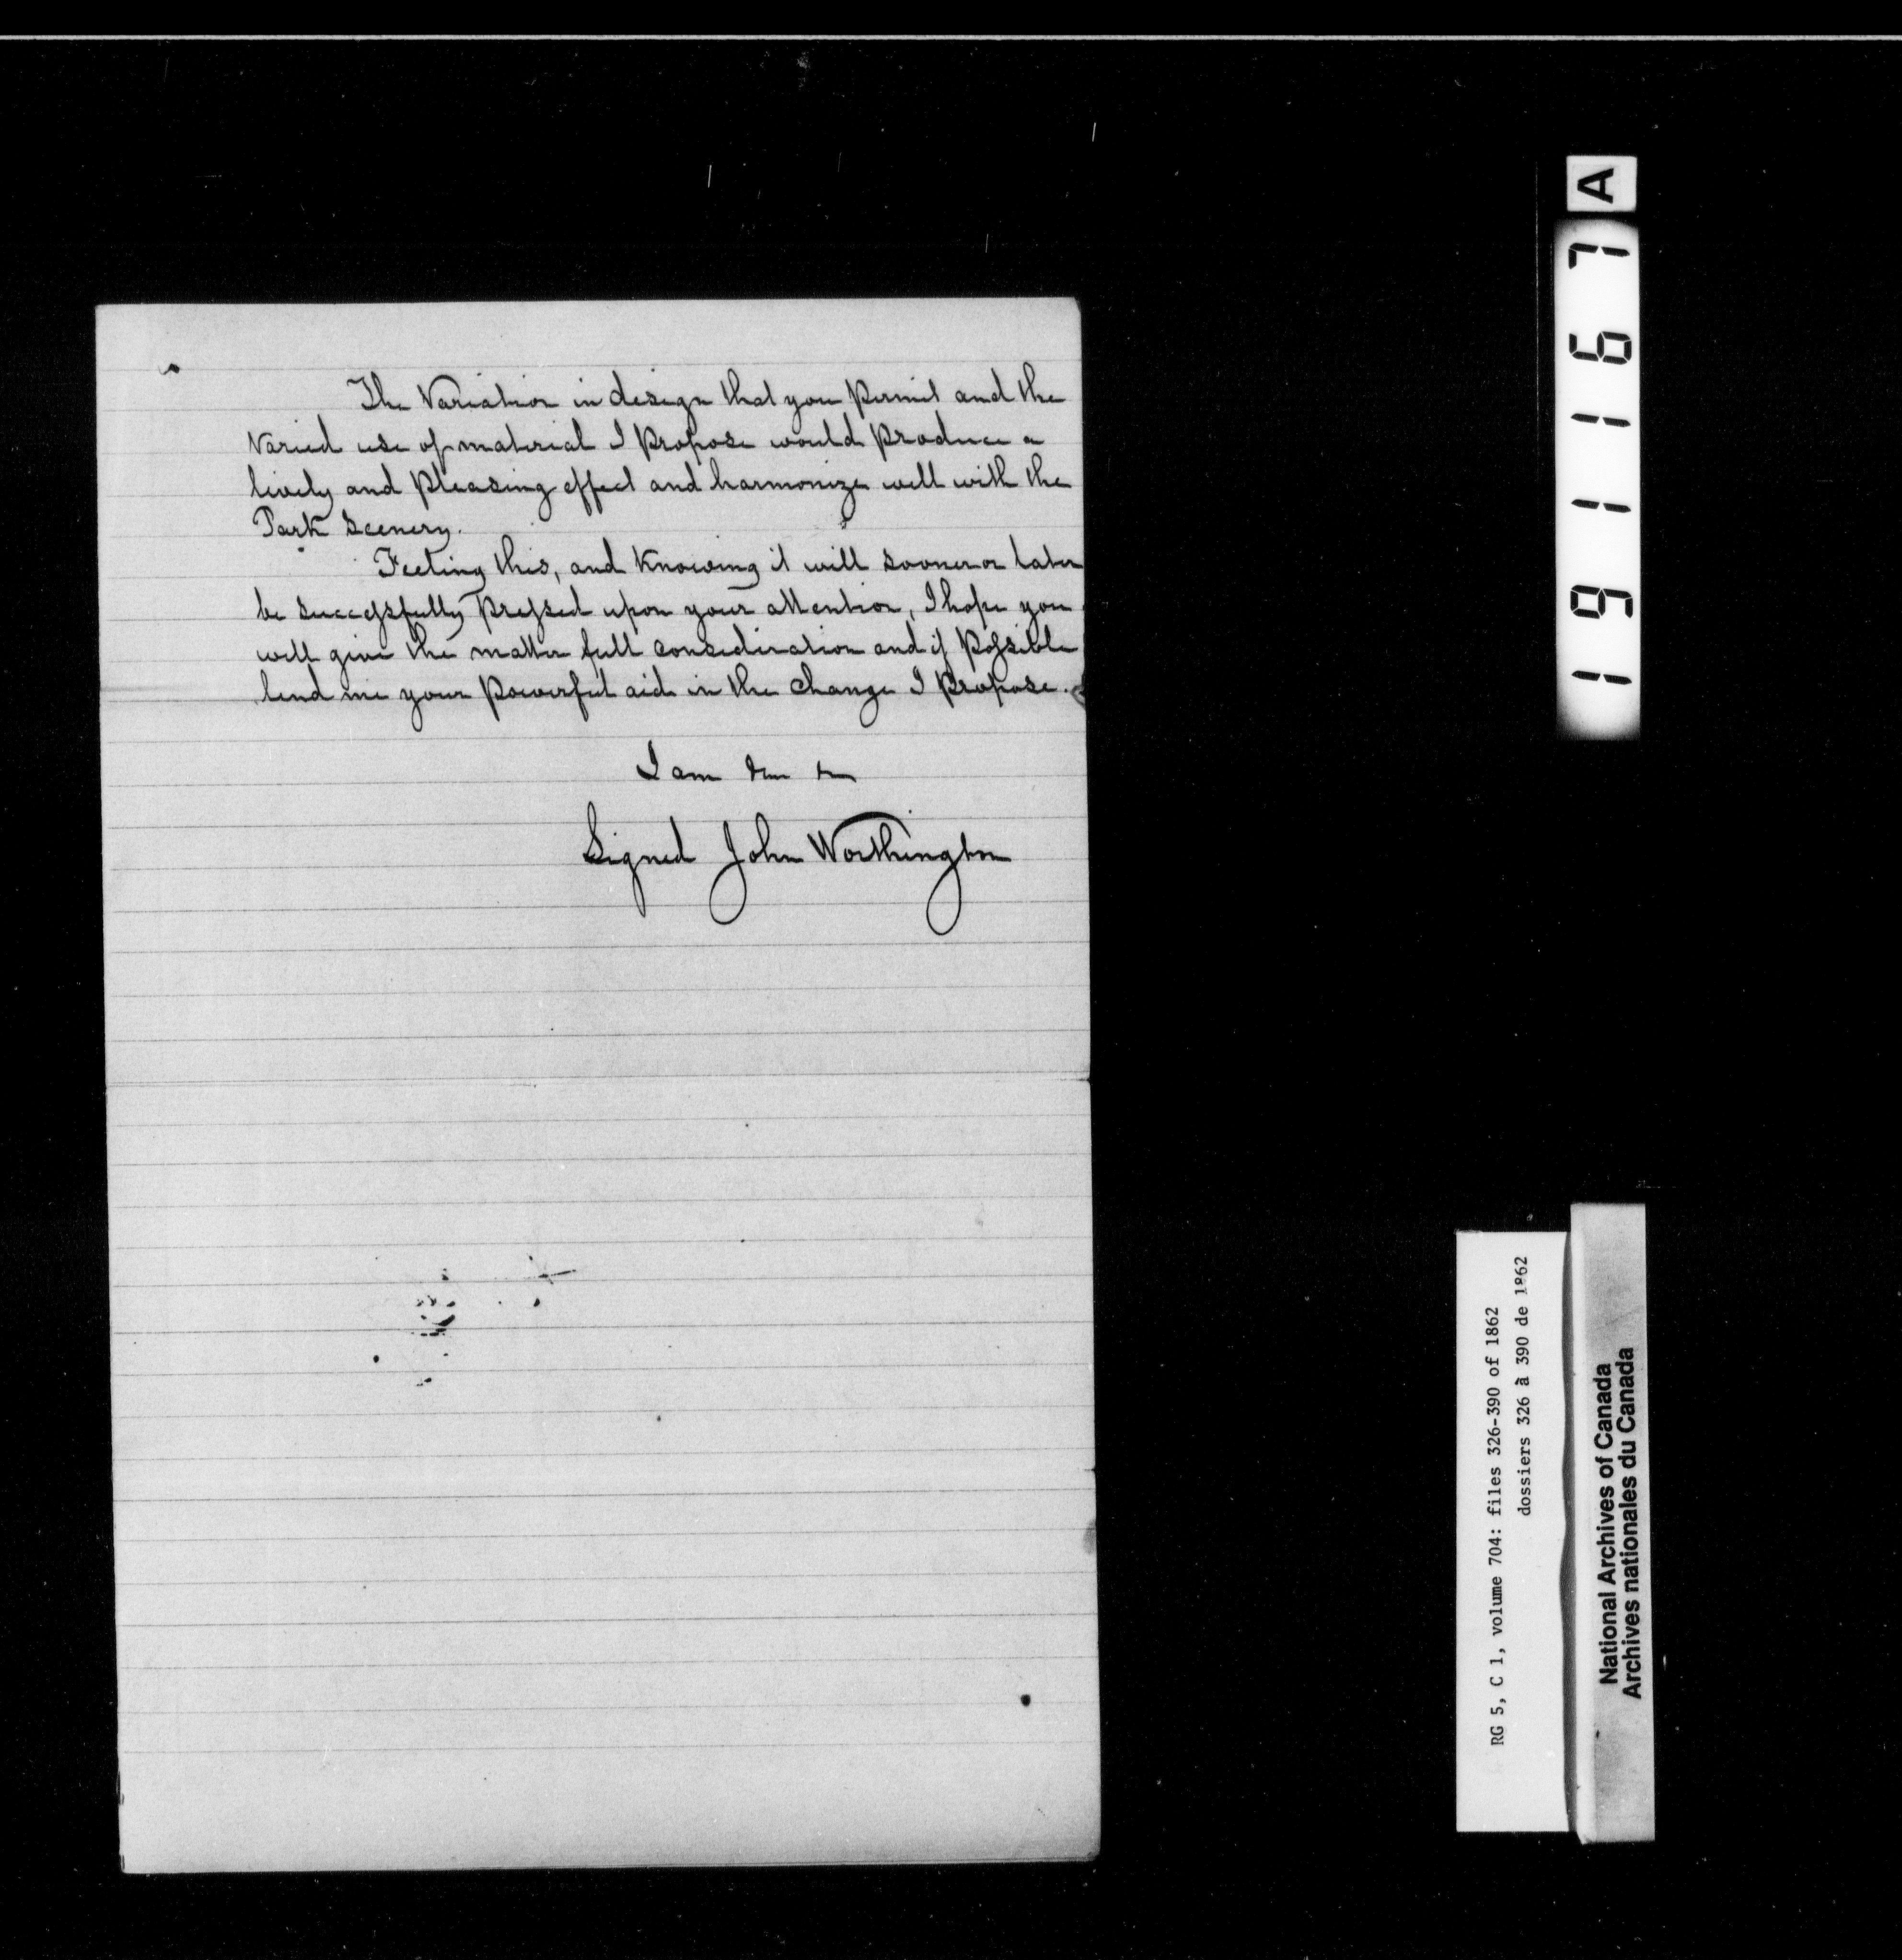 The Variation in design that you permit and the
Varied use of material I propose would produce a
lively and pleasing effect and harmonize well with the
Park Scenery.
Feeling this, and Knowing it will sooner or later
be successfully pressed upon your attention, I hope you
will give the matter full consideration and if possible
lend me your powerful aid in the change I propose.
I am
Signed John Worthington
191167
A
RG 5, C 1, volume 704: files 326-390 of 1862
dossiers 326 à 390 de 1862
National Archives of Canada
Archives nationales du Canada